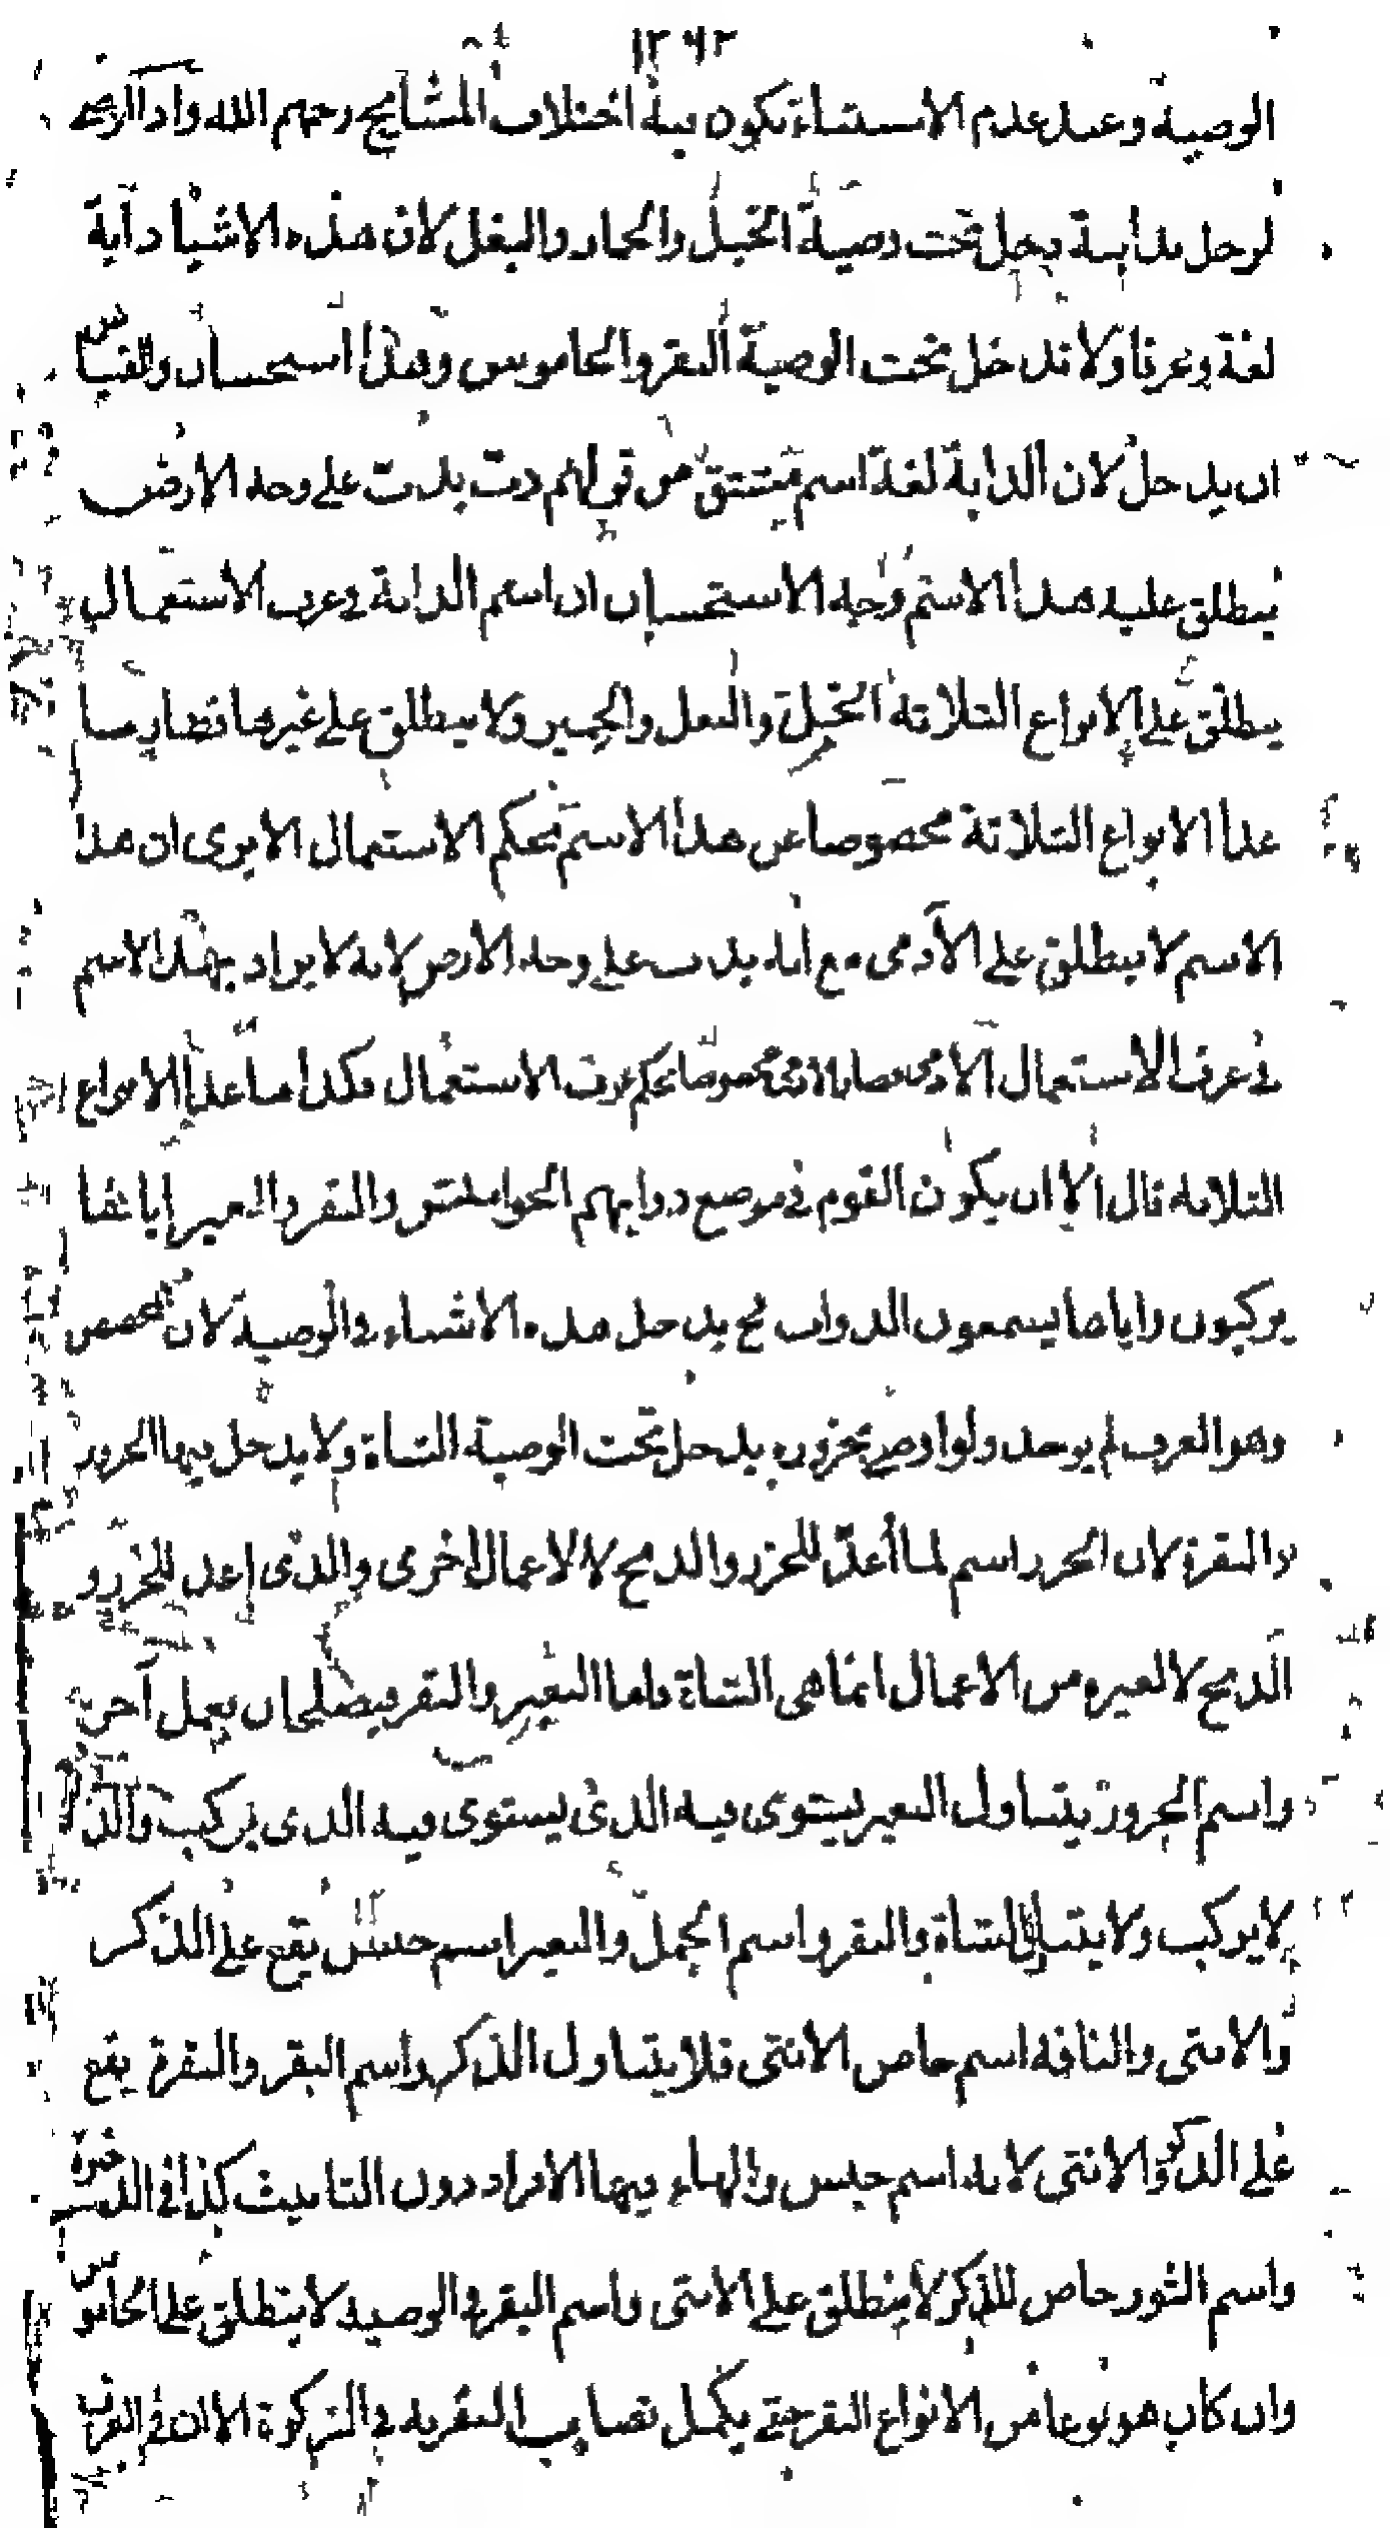 ١٢٦٢
الوصية وعند عدم الاستثناء تكون فيه اختلاف المشايخ رحمهم الله واذا اوصى
لرجل بدابة يدخل تحت وصية الخيل والحمار والبغل لان هذه الاشياء دابة
لغة وعرفا ولا تدخل تحت الوصية البقر والجاموس وهذا استحسان والقياس
ان يدخل لان الدابة لغة اسم مشتق من قولهم دبت يدبت على وجه الارض
ينطلق عليه هذا الاسم وجه الاستحسان ان اسم الدابة في عرف الاستعمال
ينطلق على الانواع الثلاثة الخيل والبغل والحمير ولا ينطلق على غيرها فصار ما
عدا الانواع الثلاثة مخصوصا عن هذا الاسم بحكم الاستعمال الا يرى ان هذا
الاسم لا ينطلق على الآدمى مع انه يدب على وجه الارض لانه لا يراد بهذا الاسم
فى عرف الاستعمال الآدمى فصار الآدمى مخصوصا بحكم عرف الاستعمال فكذا ما عدا الانواع
الثلاثة قال الا ان يكون القوم فى موضع دوابهم الجواميس والبقر والبعير اياها
يركبون واياها يسمون الدواب فح يدخل هذه الاشياء فى الوصية لان المخصص
وهو العرف لم يوجد ولو اوصى بجزوره يدخل تحت الوصية الشاة ولا يدخل فيها الجزور
والبقرة لان الجزر اسم لما أعدّ للجزر والذبح لا لاعمال اخرى والذى اعد للجزر و
الذبح لا لغيره من الاعمال انما هى الشاة فاما البعير والبقر فيصلح ان يعمل آخر
واسم الجزور يتناول البعير يستوى فيه الذى يستوى فيه الذى يركب والذى
لا يركب ولا يتناول الشاة والبقر واسم الجمل والبعير اسم جنس يقع على الذكر
والانثى والناقة اسم خاص الانثى فلا يتناول الذكر واسم البقر والبقرة يقع
على الذكر والانثى لانه اسم جنس والهاء فيها للافراد دون التانيث كذا فى الذخيرة
واسم الثور خاص للذكر لا ينطلق على الانثى واسم البقر فى الوصية لا ينطلق على الجاموس
وان كان هو نوعا من الانواع البقر حتى يكمل نصاب البقر به فى الزكوة الا ان فى العرف